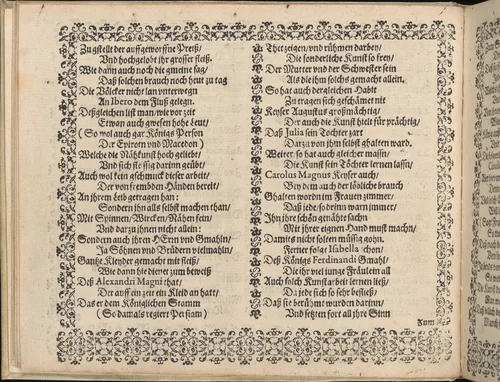 Zu gstellt der auffgeworffne Preiß/
Vnd hochgelobt ihr grosser fleiß.
Wie dann auch noch die gmeine sag/
Daß solchen brauch noch heut zu tag
Die Völcker nicht lan vnterwegn
An Ibero dem Fluß gelegn.
Deßgleichen list man/wie vor zeit
Etwan auch gwesen hohe Leut/
(So wol auch gar Königs Person
Der Epirotn vnd Macedon)
Welche die Nähkunst hoch geliebt/
Vnd sich fleissig darinn geübt/
Auch wol kein gschmuck dieser arbeit/
Der von frembden Händen bereit/
An jhrem Leib getragen han:
Sondern jhn alls selbst machen than/
Mit Spinnen/Wircken/Nähen fein/
Vnd darzu jhnen nicht allein:
Sondern auch jhren HErrn vnd Gmahln/
Ja Söhnen vnd Brüdern vielmahln/
Gantze Kleyder gemacht mit fleiß/
Wie dann hie dienet zum beweiß
Deß Alexandri Magni that/
Der auff ein zeit ein Kleid an hatt/
Das er dem Königlichen Stamm
(So damals regiert Persiam)
Thet zeigen/vnd rühmen darbey/
Die sonderliche Kunst so frey/
Der Mutter vnd der Schwester sein
Als die jhm solchs gemacht allein.
So hat auch dergleichen Habit
Zu tragen sich geschämet nit
Keyser Augustus großmächtig/
Der auch die Kunst hielt für prächtig/
Daß Julia sein Tochter zart
Darzu von jhm selbst ghalten ward.
Weiter/so hat auch gleicher massn/
Die Kunst sein Töchter lernen lassn/
Carolus Magnus Keyser auch/
Bey dem auch der löbliche brauch
Ghalten worden im Frauen zimmer/
Daß jede so darinn warn jmmer/
Ihn jhre schön genähte sachn
Mit jhrer eignen Hand must machn/
Damits nicht solten müssig gohn.
Ferner folgt Isabella schon/
Deß Königs Ferdinandi Gmahl/
Die ihr viel junge Fräulein all
Auch solch Kunstarbeit lernen ließ/
Da jede sich so sehr befließ/
Daß sie berühmt wurden darinn/
Vnd setzten fort all jhre Sinn
Zum